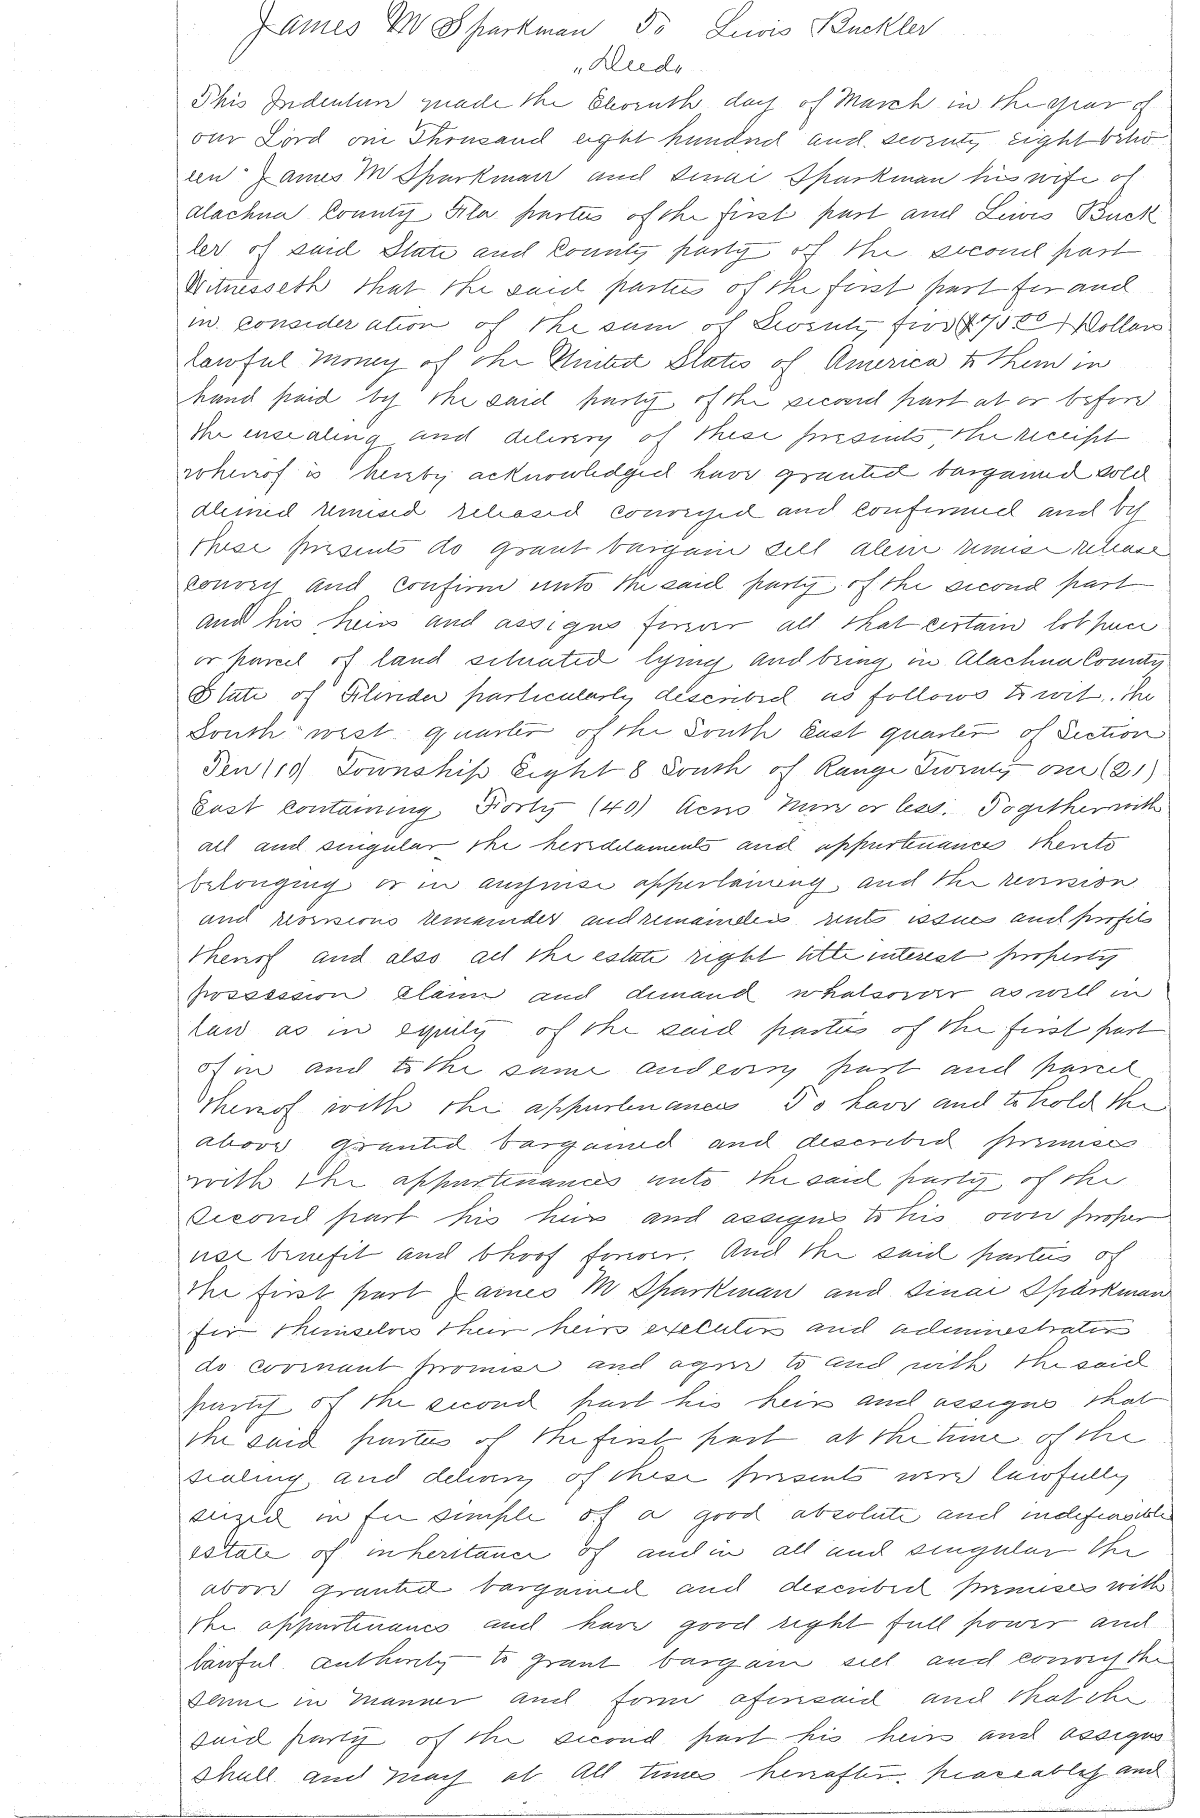 James M Sparkman To Lewis Buckler
"Deed"
This Indenture made the Eleventh day of March in the year of
our Lord one Thousand eight hundred and seventy eight betw
een James M Sparkman and Sinai Sparkman his wife of
Alachua County Fla parties of the first part and Lewis Buck
ler of said State and County party of the second part
Witnesseth that the said parties of the first part for and
in consideration of the sum of Seventy five ($75 00) Dollars
lawful money of the United States of America to them in
hand paid by the said party of the second part at or before
the ensealing and delivery of these presents, the receipt
whereof is hereby acknowledged have granted bargained sold
aliened remised released conveyed and confirmed and by
these presents do grant bargain sell alein remise release
convey and confirm unto the said party of the second part
and his heirs and assigns forever all that certain lot piece
or parcel of land situated lying and being in Alachua County
State of Florida particularly described as follows to wit. The
South west quarter of the South East quarter of Section
Ten (10) Township Eight 8 South of Range Twenty one (21)
East containing Forty (40) Acres More or less. Together with
all and singular the hereditaments and appurtenances thereto
belonging or in anywise appertaining and the reversion
and reversions remainder and remainders rents issues and profits
thereof and also all the estate right title interest property
possession claim and demand whatsoever as well in
law as in equity of the said parties of the first part
of in and to the same and every part and parcel
thereof with the appurtenances To have and to hold the
above granted bargained and described premises
with the appurtenances unto the said party of the
second part his heirs and assigns to his own proper
use benefit and bhoof forever. And the said parties of
the first part James M Sparkman and Sinai Sparkman
for themselves their heirs executors and administrators
do covenant promise and agree to and with the said
party of the second part his heirs and assigns that
the said parties of the first part at the time of the
sealing and delivery of these presents were lawfully
seized in fee simple of a good absolute and indefeasible
estate of inheritance of and in all and singular the
above granted bargained and described premises with
the appurtenances and have good right full power and
lawful authority to grant bargain sell and convey the
same in manner and form aforesaid and that the
said party of the second part his heirs and assigns
shall and may at all times hereafter. peaceably and